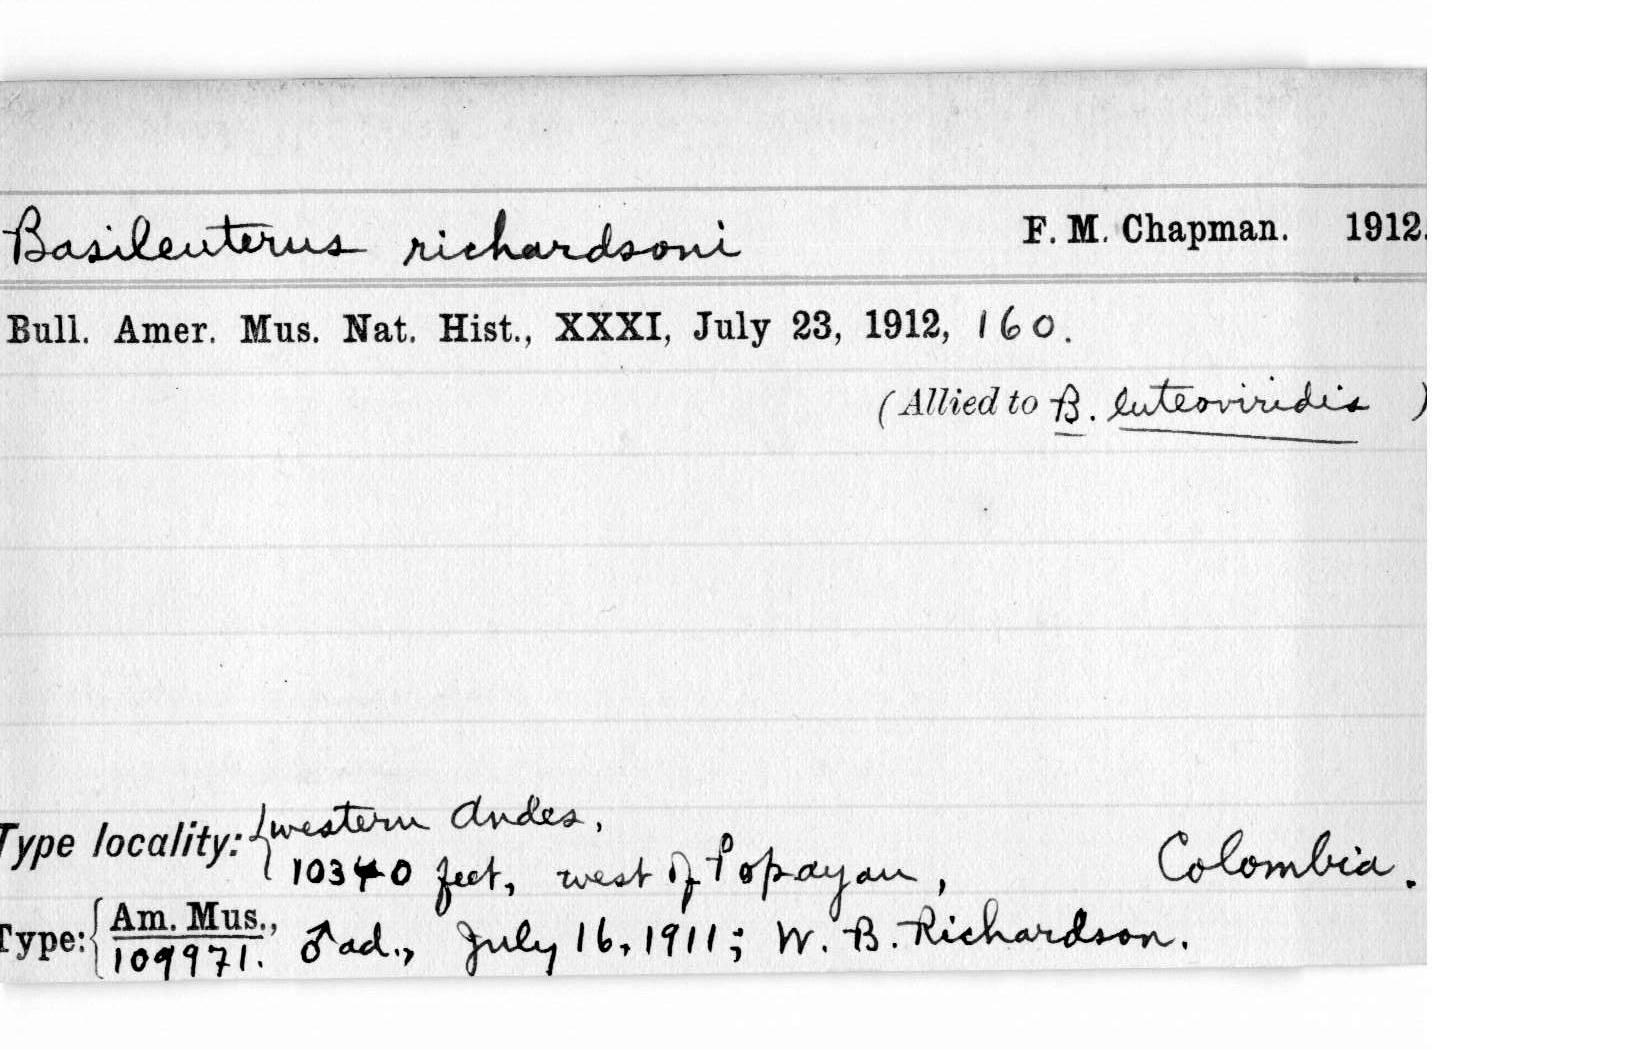 Basileuterus richardsoni F. M. Chapman. 1912.
Bull. Amer. Mus. Nat. Hist., XXXI, July 23, 1912, 160.
(Allied to B. luteoviridis )
Type locality: { western Andes,
10340 feet, west of Popayan, Colombia.
Type: { Am. Mus., ♂ ad., July 16, 1911; W. B. Richardson.
109971.